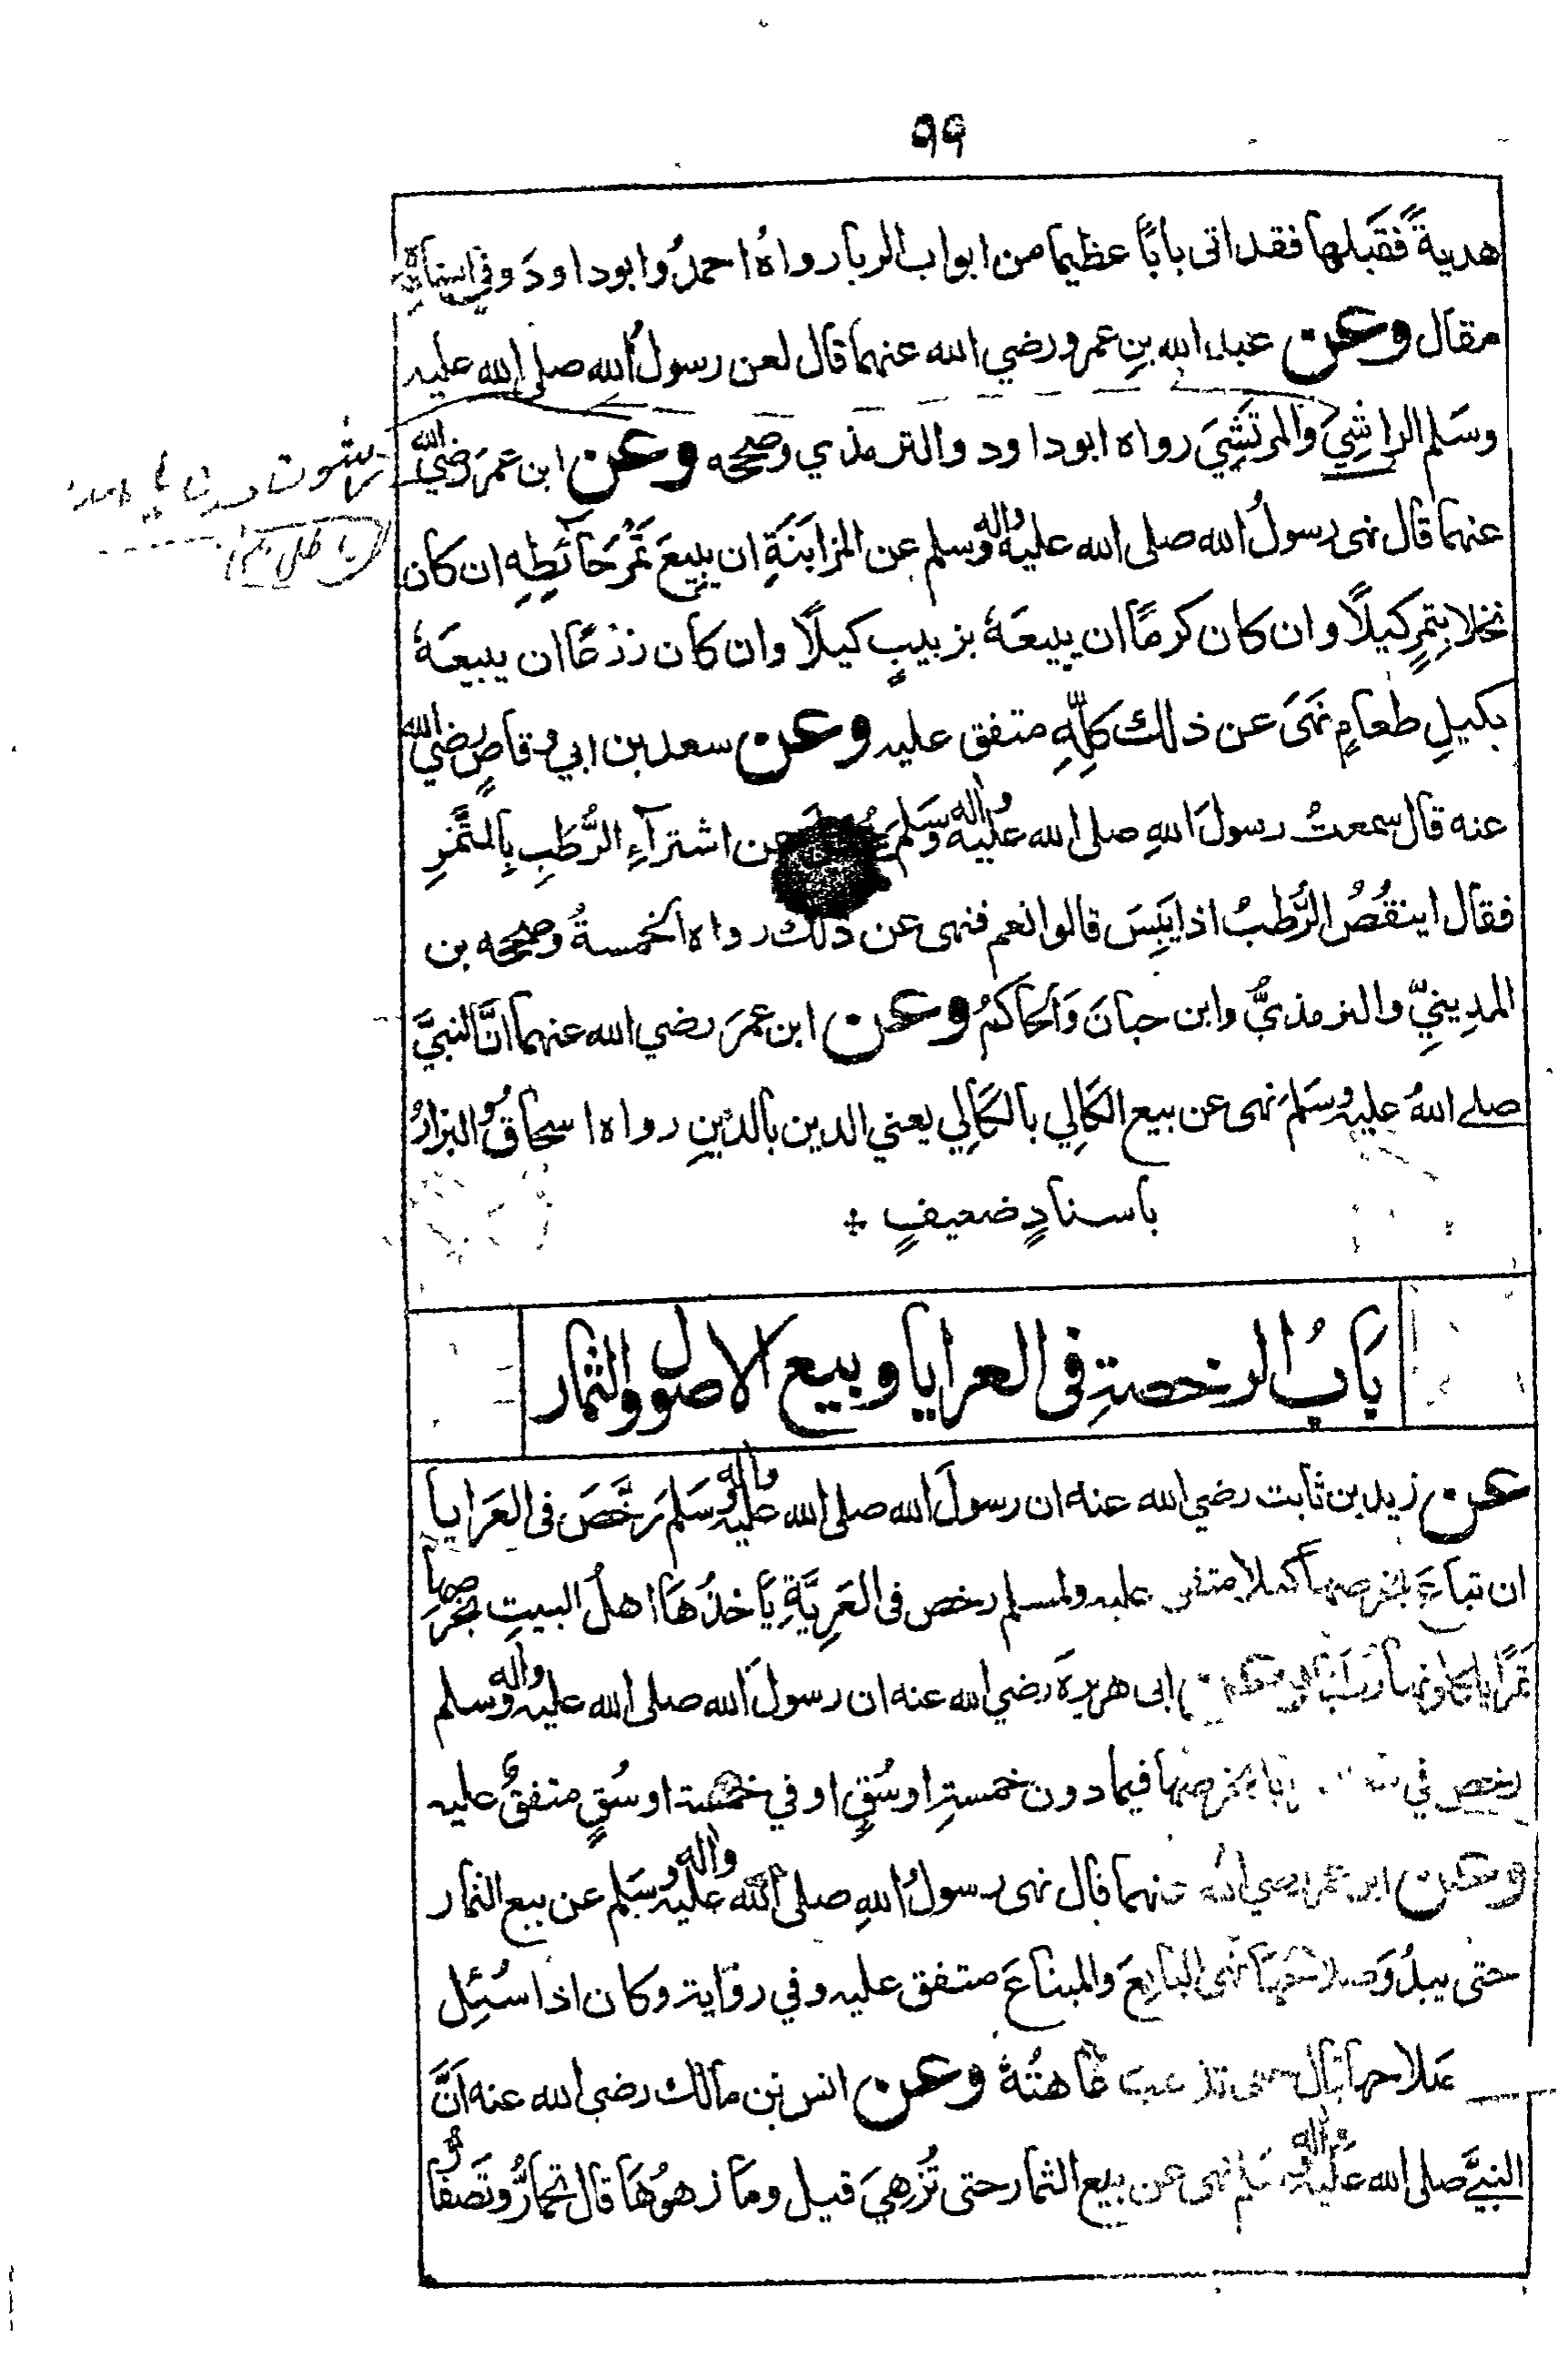 ٩٩
هديةً فقَبِلها فقد اتى بابًا عظيما من ابواب الربا رواهُ احمدُ وابوداودَ وفي اسنادِه
مقال وعن عبد الله بنِ عمرو رضي الله عنهما قال لعن رسولُ الله صلى الله عليه
وسَلم الراشِيَ والمرتَشِيَ رواه ابوداود والترمذي وصححه وعن ابن عمرَ رضي الله
عنهما قال نهى رسولُ الله صلى الله عليه واله وسلم عن المزابَنَةِ ان يبيعَ ثَمَرَ حَائطِهِ ان كان
نخلا بِتمرٍ كيلًا وان كان كرمًا ان يبيعَهُ بزبيبٍ كيلًا وان كان زرْعًا ان يبيعَهُ
بكيلِ طعامٍ نَهَى عن ذلك كلِّهِ متفق عليه وعن سعد بن ابي وقاصٍ رضي الله
عنه قال سمعتُ رسولَ اللهِ صلى الله عليه واله وسَلم عن اشترآءِ الرُّطَبِ بِالتَّمْرِ
فقال اينقُصُ الرُّطبُ اذا يَبِسَ قالوا نعم فنهى عن ذلك رواه الخمسةُ وصححه بن
المدِينيِّ والترمذيُّ وابن حبانَ وَالحاكمُ وعن ابن عمرَ رضي الله عنهما انَّ النبيَّ
صلے اللهُ عليه وسَلم نهى عن بيع الكَالِي بالكَالِي يعني الدين بالدَّينِ رواه اسحاقُ والبزارُ
باسنادٍ ضعيفٍ ÷
بَابُ الرخصةِ فى العرايا وبيع الاصول والثمار
عن زيد بن ثابت رضي الله عنه ان رسولَ الله صلى الله عليه واله وسَلم رَخَّصَ فى العَرَايا
ان تباعَ بخرصها كيلا متفق عليه ولمسلم رخص فى العَرِيَّةِ يَأخذُهَا اهلُ البيتِ بخرصِها
تمرًا ياكلونها رطبًا وعن ابى هريرةَ رضي الله عنه ان رسولَ الله صلى الله عليه واله وسلم
رخص في بخرصها فيما دون خمسةِ اوسُقٍ او في خمسة اوسُقٍ متفقٌ عليه
وعن ابن عمر رضي الله عنهما قال نهى رسولُ اللهِ صلى الله عليه واله وسَلم عن بيع الثمار
حتى يبدُوَ صلاحُهَا نهى البايعَ والمبتاعَ متفق عليه وفي روَاية وكان اذا سُئِل
صلاحها قال حتى تذهب عَاهتُهُ وعن انس بن مالك رضي الله عنه اَنَّ
النبيَّ صلى الله عَليه واله وسلم نهى عن بيع الثمار حتى تُزهِيَ قيل ومَا زهوُهَا قال تحمارُّ وتَصفارُّ